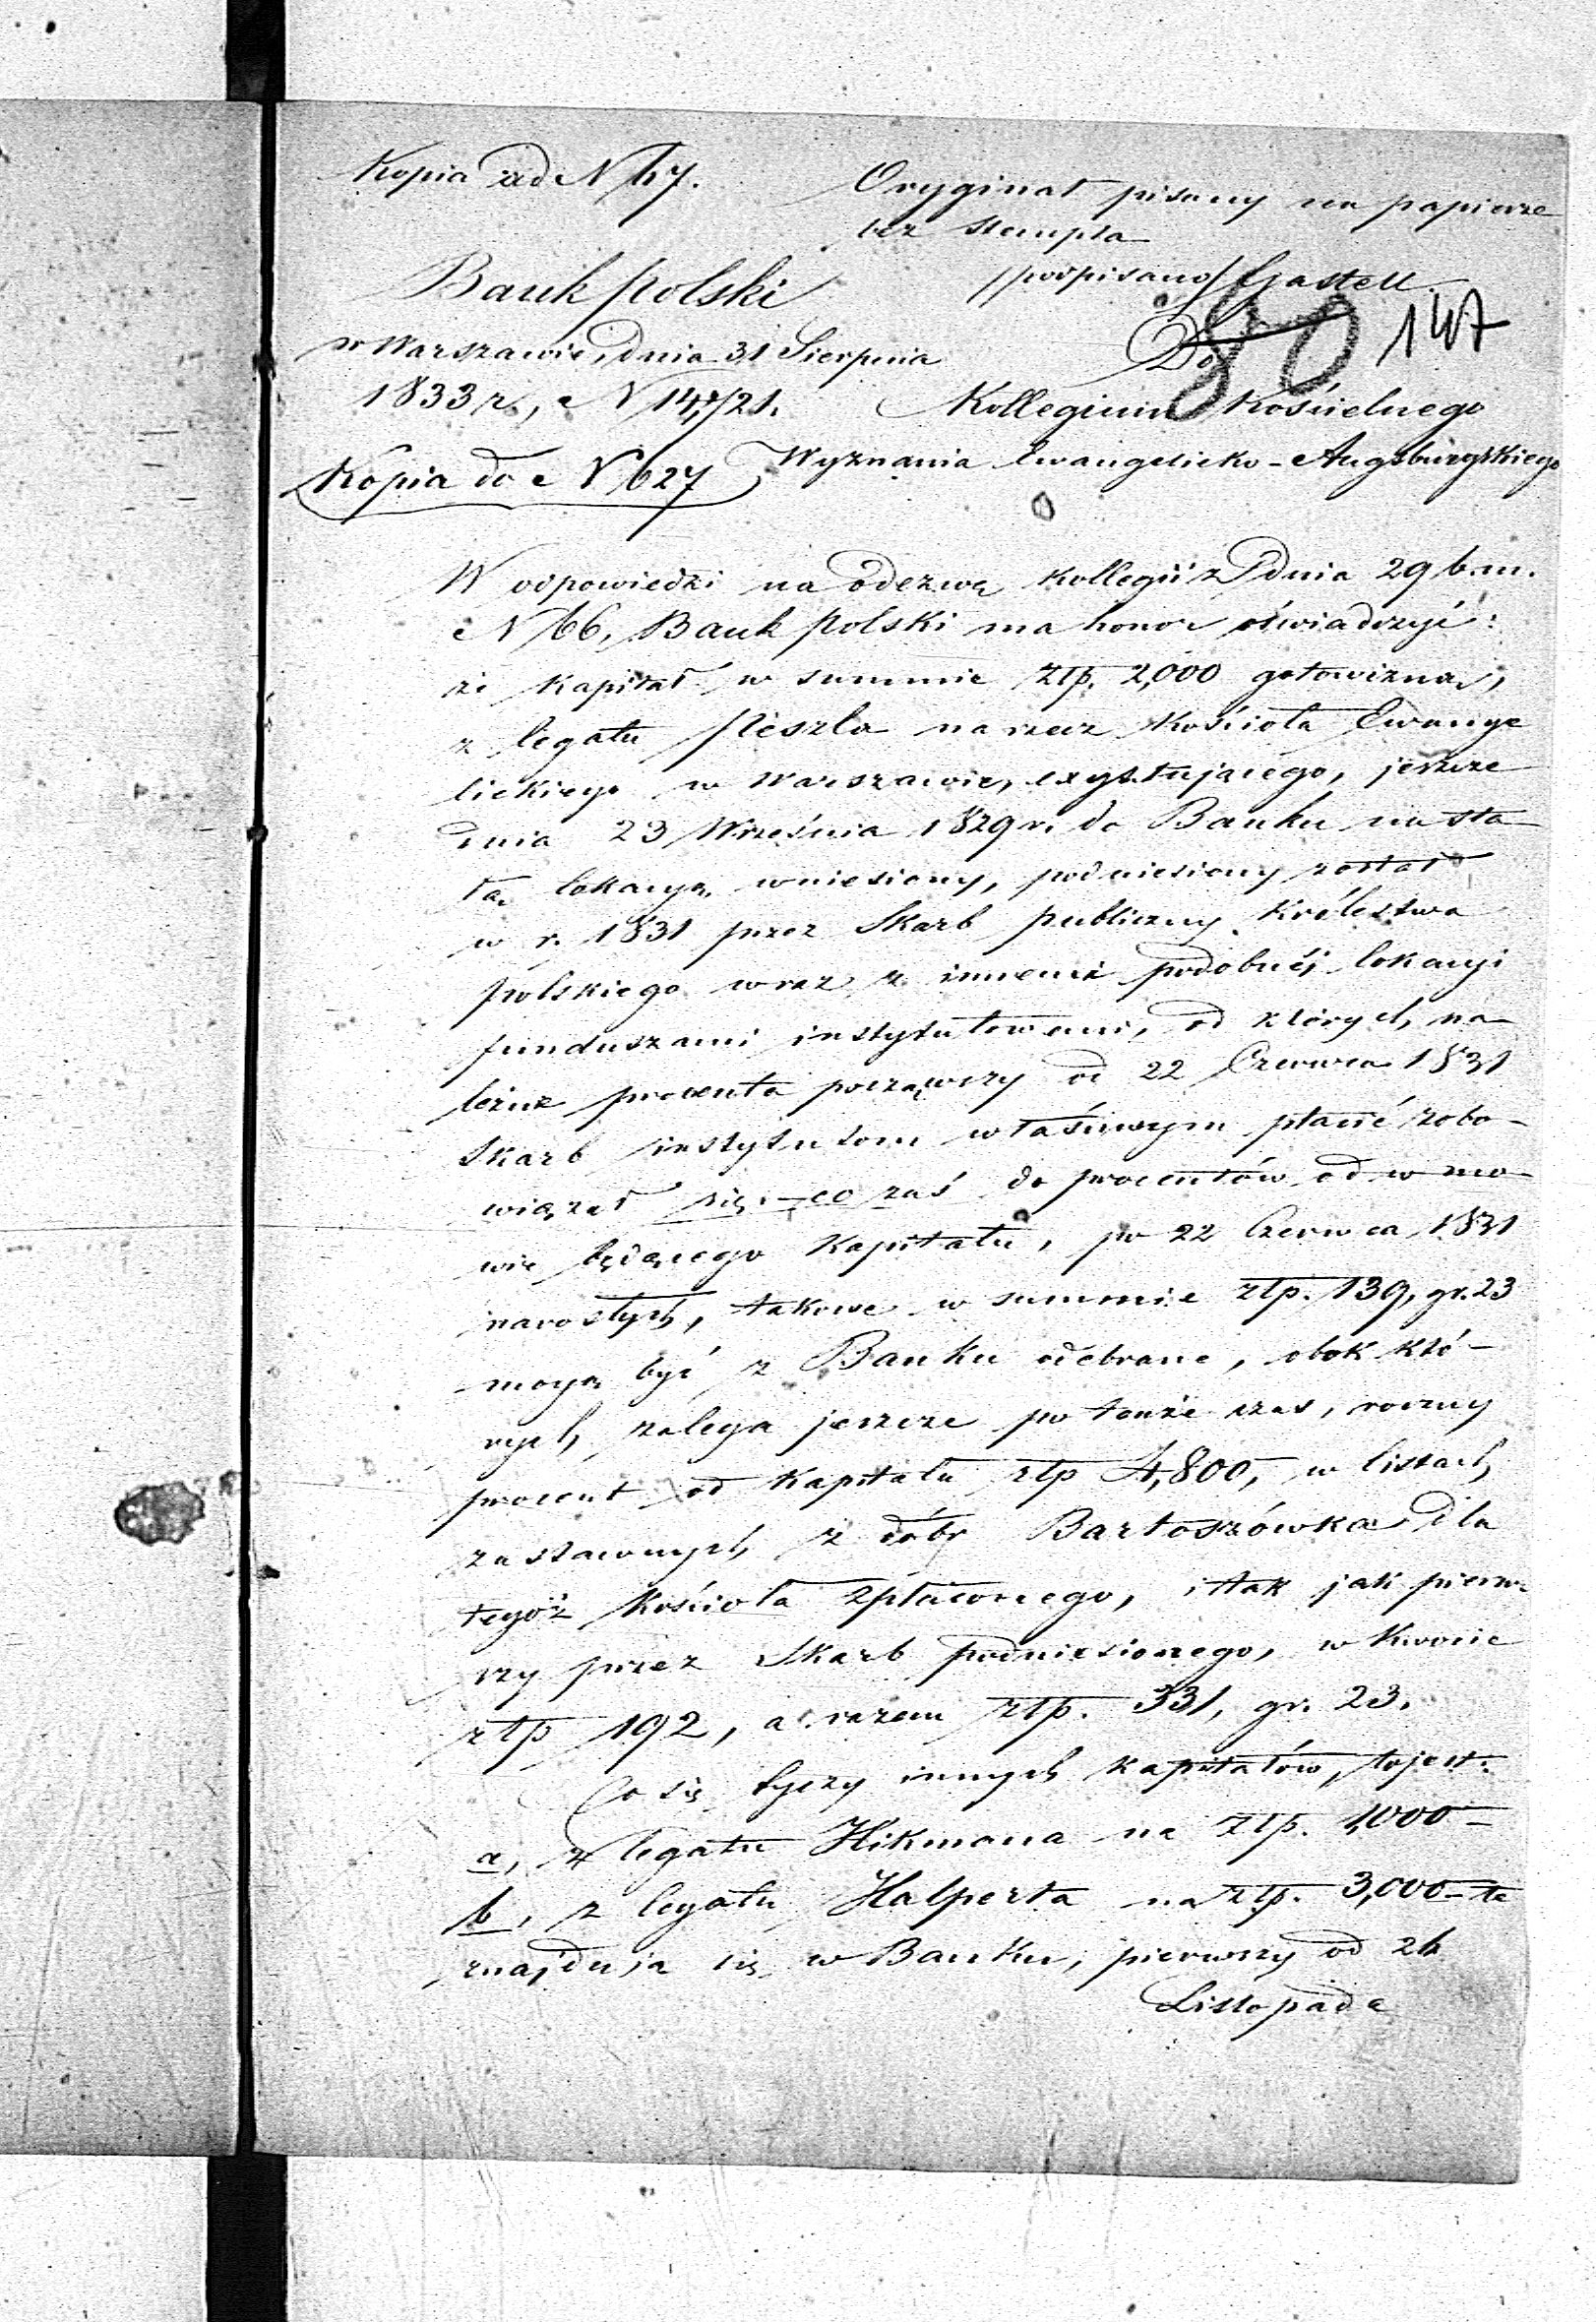 Kopia ad N 67.
Oryginał pisany na papierze
bez stempla
/podpisano/ Gastell.
80 147
Bank Polski
w Warszawie, dnia 31 Sierpnia
1833 r., N 14,721.
Kopia do N 627
Do
Kollegium Kościelnego
Wyznania Ewangelicko-Augsburgskiego
W odpowiedzi na odezwę Kollegii z dnia 29 b.m.
N 66, Bank Polski ma honor oświadczyć:
że Kapitał w summie Złp. 2,000 gotowizną,
z legatu na rzecz Kościoła Ewange
lickiego w Warszawie, exystującego, jeszcze
dnia 23 Września 1829 r. do Banku na sta
łą lokacyą wniesiony, podniesiony został
w r. 1831 przez Skarb publiczny Królestwa
Polskiego wraz z innemi podobnéj lokacyi
funduszami instytutowemi, od których, na
leżne procenta począwszy od 22 Czerwca 1831
Skarb instytutom właściwym płacić zobo-
wiązał się; – co zaś do procentów od w mo
wie będącego Kapitału, po 22 Czerwca 1831
narosłych, takowe w summie złp. 139, gr. 23
mogą być z Banku odebrane, obok któ-
rych, zalega jeszcze po tenże czas, roczny
procent od Kapitału złp 4,800, w listach
zastawnych z dóbr Bartoszówka dla
tegoż Kościoła spłaconego, i tak jak pierw
szy przez Skarb podniesionego, w kwocie
złp 192, a razem złp. 331, gr. 23.
Co się tyczy innych kapitałów, tojest:
a, z legatu Hikmana na złp. 1,000 –
b, z legatu Halperta na złp. 3,000 – te
znajdują się w Banku, pierwszy od 26
Listopada